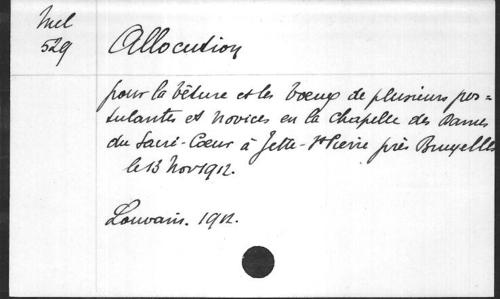 Mel
529
Allocution
pour la vêture et les voeux de plusieurs pos=
tulantes et novices en la Chapelle des Dames
du Sacré-Coeur à Jette-St Pierre près Bruxelles
le 13 Nov 1912.
Louvain. 1912.